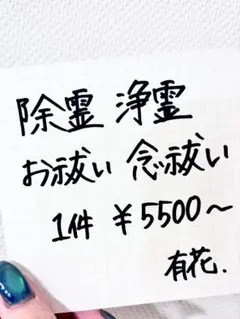 除霊 浄霊
お祓い 念祓い
1件 ¥5500〜
有花.